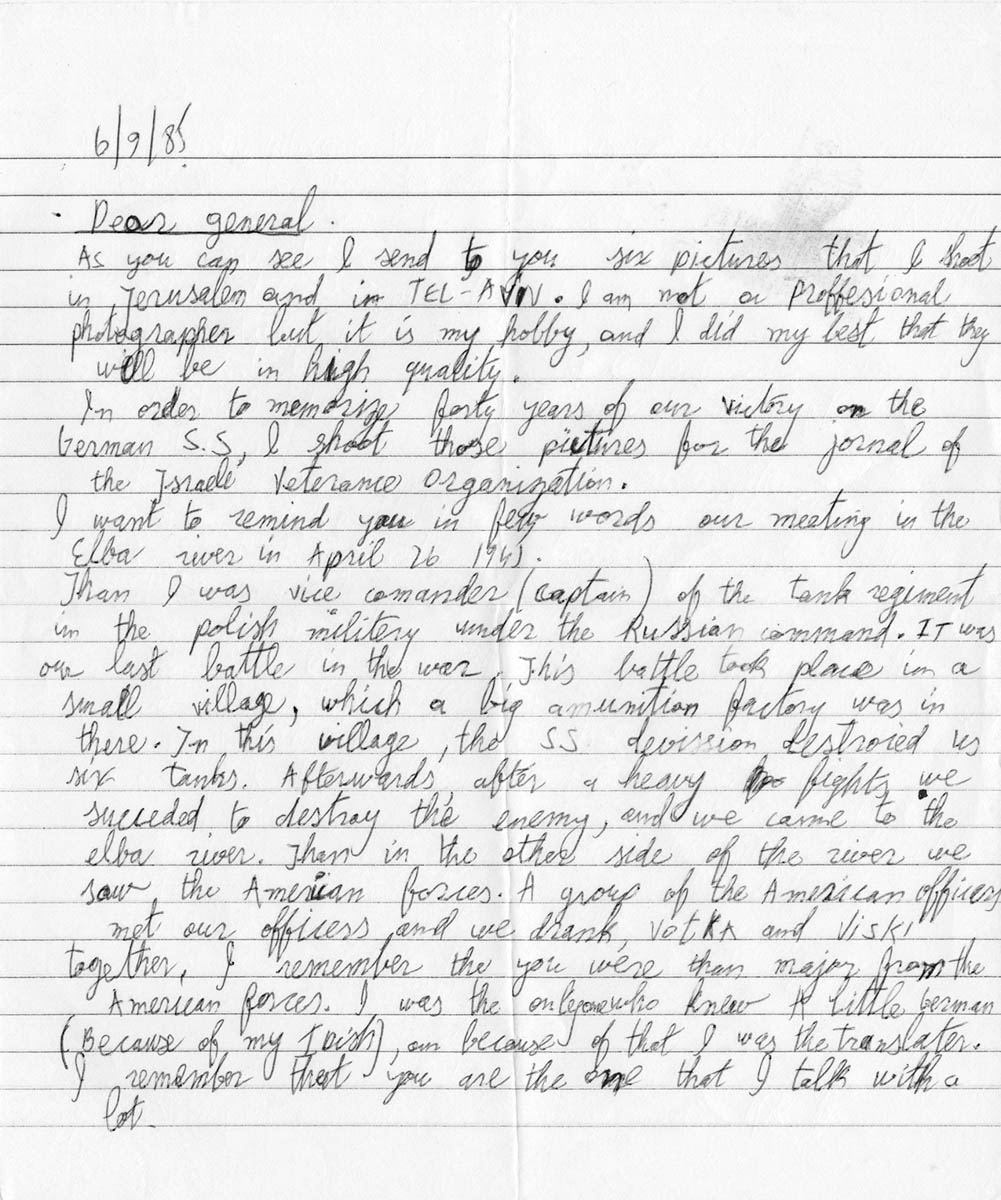 6/9/85
Dear general.
As you can see I send to you six pictures that I shoot
in Jerusalem and in TEL-AVIV. I am not a proffesional
photographer but it is my hobby, and I did my best that they
will be in high quality.
In order to memorize forty years of our victory on the
German S.S, I shoot those pictures for the jornal of
the Israeli Veterance Organization.
I want to remind you in few words our meeting in the
Elba river in April 26 1945.
Than I was vice comander (captain) of the tank regiment
in the polish militery under the Russian command. IT was
our last battle in the war. This battle took place in a
small village, which a big amunition factory was in
there. In this village, the SS devission destroied us
six tanks. Afterwards, after a heavy fight, we
succeded to destroy the enemy, and we came to the
elba river. Than in the other side of the river we
saw the American forces. A group of the American officers
met our officers and we drank, VotKA and ViSKI
together, I remember the you were than major from the
American forces. I was the only one who knew A little German
(Because of my Idish), because of that I was the translater.
I remember that you are the one that I talk with a
lot.